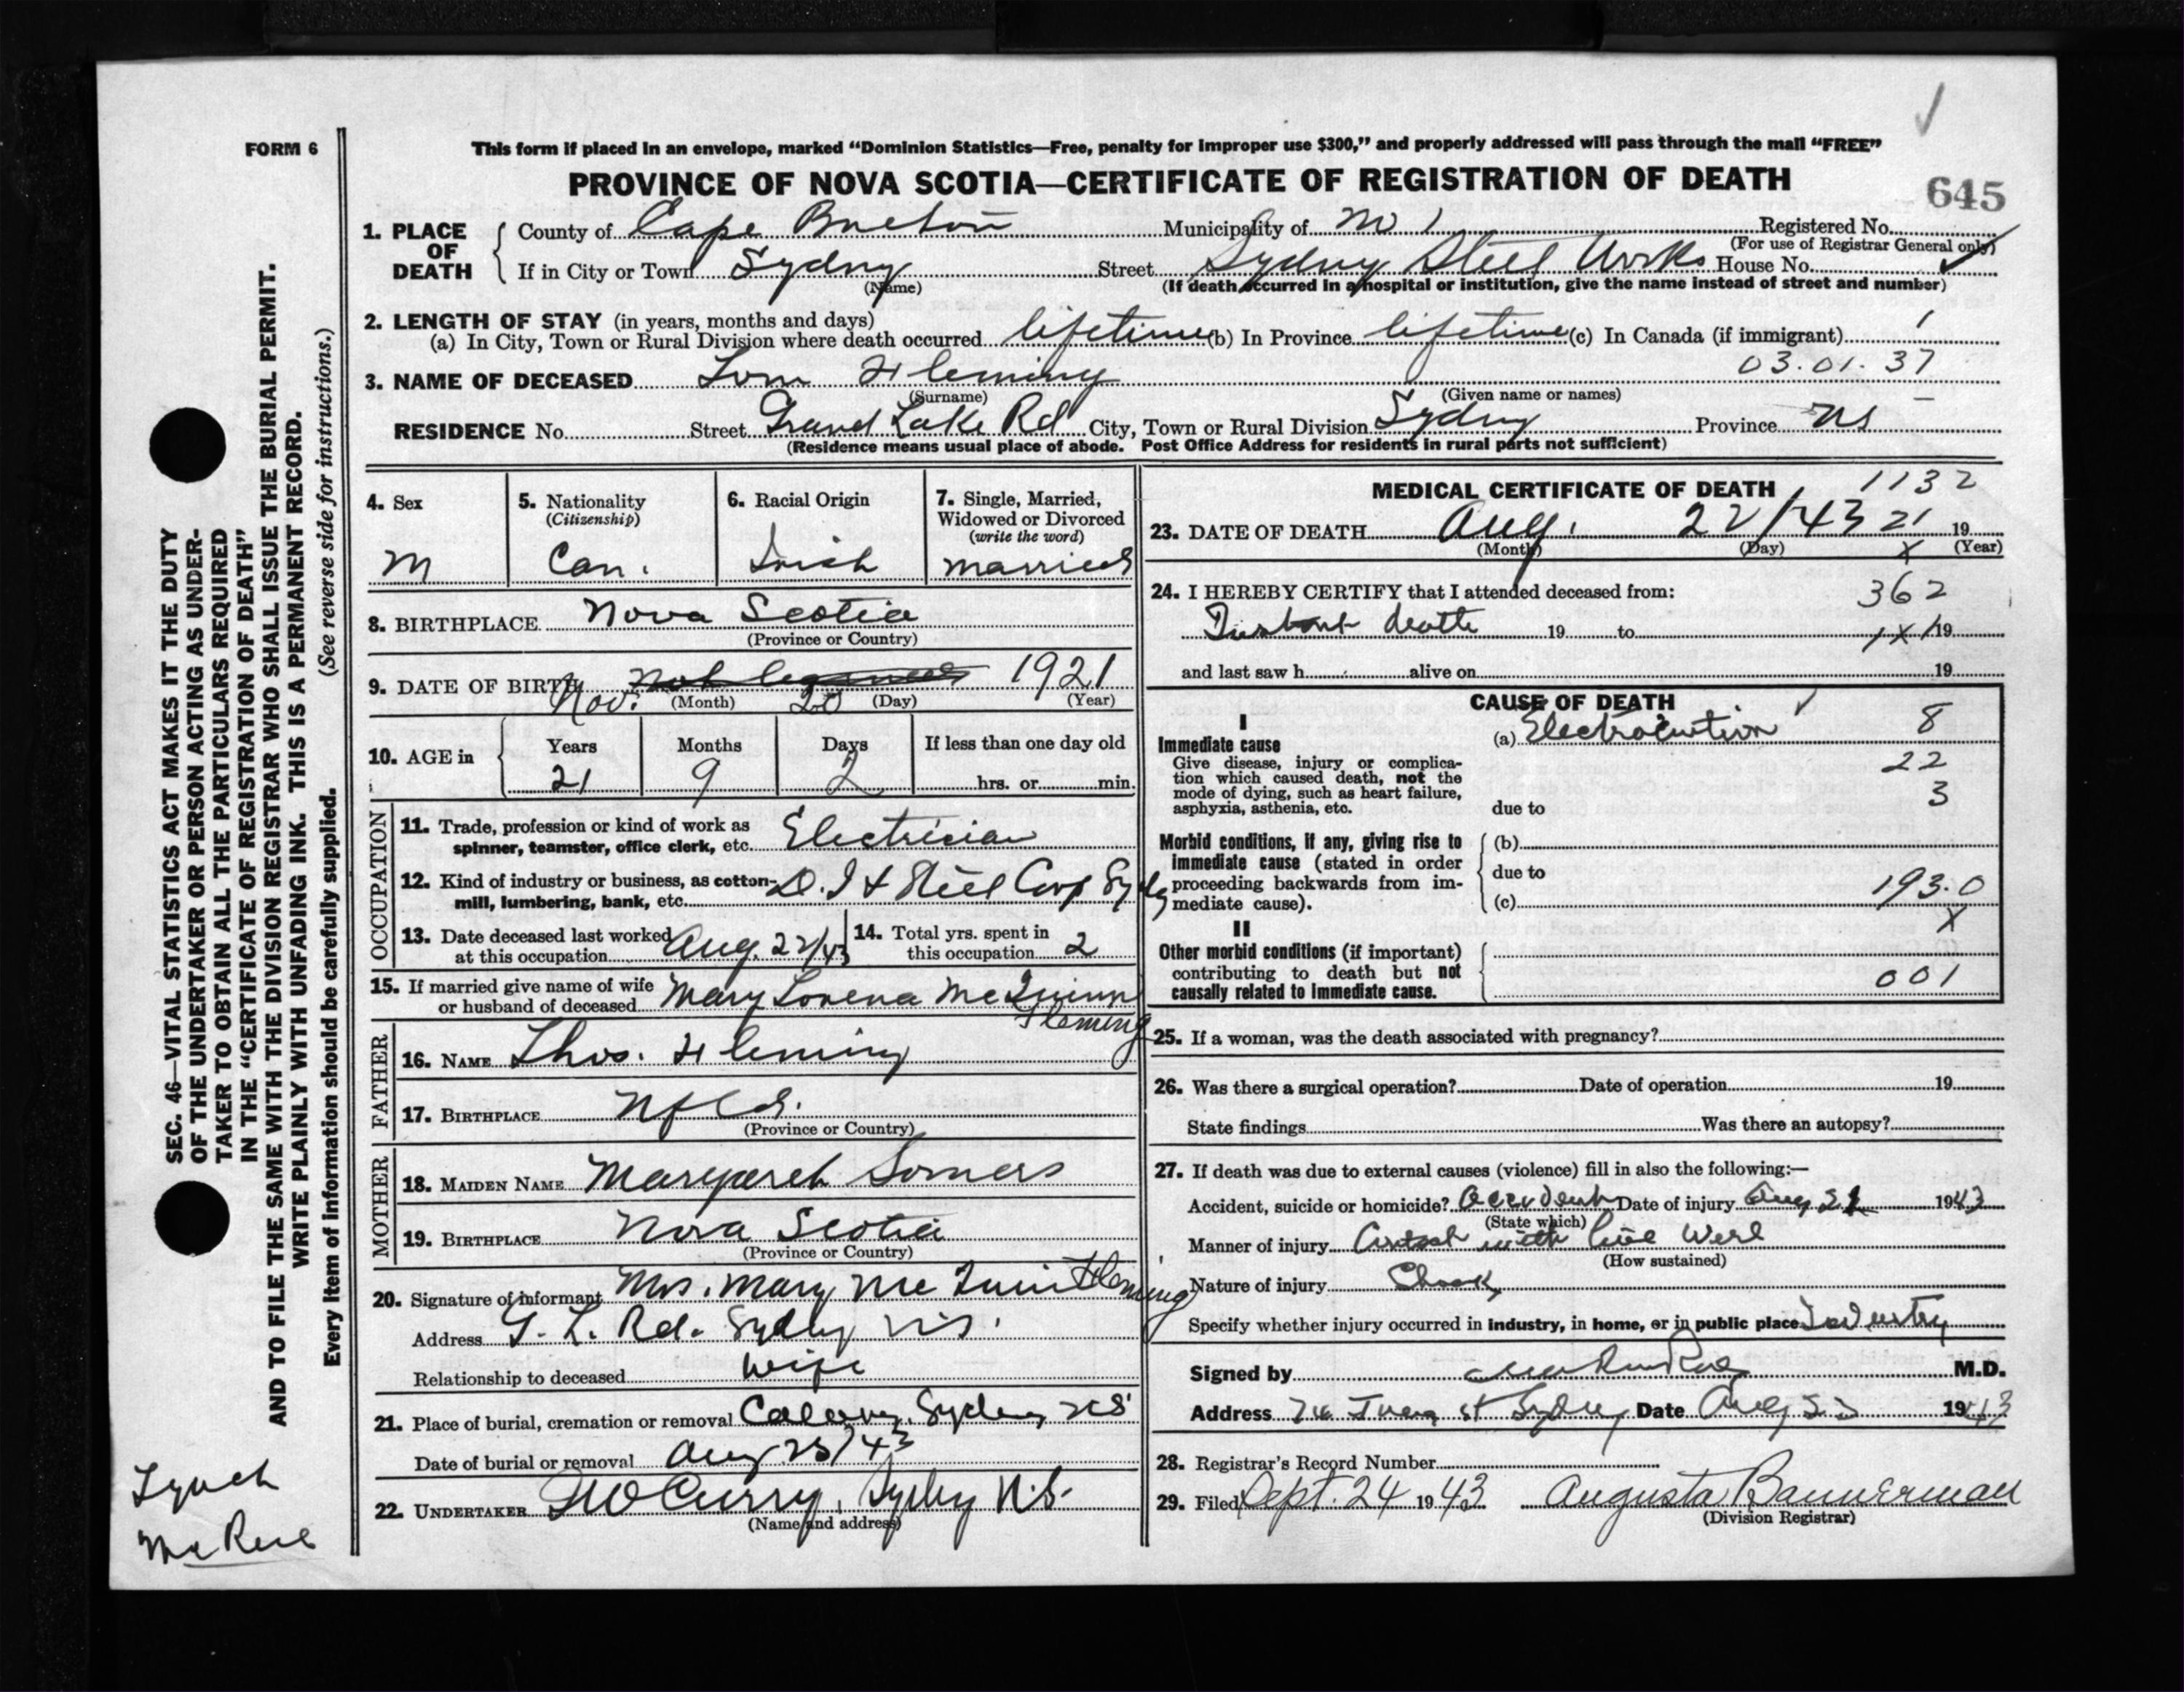 FORM 6
This form if placed in an envelope, marked “Dominion Statistics—Free, penalty for improper use $300,” and properly addressed will pass through the mail “FREE”
PROVINCE OF NOVA SCOTIA—CERTIFICATE OF REGISTRATION OF DEATH
645
1. PLACE OF DEATH
County of Cape Breton Municipality of Registered No.
(For use of Registrar General only)
If in City or Town Sydney Street Sydney Steel Works House No.
(Name) (If death occurred in a hospital or institution, give the name instead of street and number)
2. LENGTH OF STAY (in years, months and days)
(a) In City, Town or Rural Division where death occurred lifetime (b) In Province lifetime (c) In Canada (if immigrant)
03.01.37
3. NAME OF DECEASED Tom Fleming
(Surname) (Given name or names)
RESIDENCE No. Street Grand Lake Rd City, Town or Rural Division Sydney Province NS
(Residence means usual place of abode. Post Office Address for residents in rural parts not sufficient)
4. Sex
M
5. Nationality
(Citizenship)
Can.
6. Racial Origin
Irish
7. Single, Married,
Widowed or Divorced
(write the word)
married
8. BIRTHPLACE Nova Scotia
(Province or Country)
9. DATE OF BIRTH Nov. 20 1921
(Month) (Day) (Year)
10. AGE in
Years Months Days If less than one day old
21 9 2 hrs. or min.
OCCUPATION
11. Trade, profession or kind of work as
spinner, teamster, office clerk, etc. Electrician
12. Kind of industry or business, as cotton-
mill, lumbering, bank, etc. D. I & Steel Corp Sydy
13. Date deceased last worked
at this occupation Aug. 22/43
14. Total yrs. spent in
this occupation 2
15. If married give name of wife
or husband of deceased Mary Lorena McQuinn
Fleming
FATHER
16. NAME Thos. Fleming
17. BIRTHPLACE Nfld.
(Province or Country)
MOTHER
18. MAIDEN NAME Margaret Somers
19. BIRTHPLACE Nova Scotia
(Province or Country)
20. Signature of informant Mrs. Mary McQuinn Fleming
Address G. L. Rd. Sydney N.S.
Relationship to deceased wife
21. Place of burial, cremation or removal Calvary, Sydney NS
Date of burial or removal Aug 25/43
22. UNDERTAKER Curry, Sydney N.S.
(Name and address)
MEDICAL CERTIFICATE OF DEATH
1132
23. DATE OF DEATH Aug. 22/43 21 19
(Month) (Day) (Year)
X
24. I HEREBY CERTIFY that I attended deceased from:
362
Instant death 19 to 1X1 19
and last saw h alive on 19
CAUSE OF DEATH
I
Immediate cause
(a) Electrocution 8
Give disease, injury or complica-
tion which caused death, not the
mode of dying, such as heart failure,
asphyxia, asthenia, etc.
22
3
due to
Morbid conditions, if any, giving rise to
immediate cause (stated in order
proceeding backwards from im-
mediate cause).
(b)
due to
(c) 193.0
X
II
Other morbid conditions (if important)
contributing to death but not
causally related to immediate cause.
001
25. If a woman, was the death associated with pregnancy?
26. Was there a surgical operation? Date of operation 19
State findings Was there an autopsy?
27. If death was due to external causes (violence) fill in also the following:—
Accident, suicide or homicide? Accident Date of injury Aug 1943
(State which)
Manner of injury Contact with live Wire
(How sustained)
Nature of injury Shock
Specify whether injury occurred in industry, in home, or in public place Industry
Signed by M.D.
Address st Sydney Date Aug 1943
28. Registrar's Record Number
29. Filed Sept. 24 1943 Augusta Bannerman
(Division Registrar)
SEC. 46—VITAL STATISTICS ACT MAKES IT THE DUTY
OF THE UNDERTAKER OR PERSON ACTING AS UNDER-
TAKER TO OBTAIN ALL THE PARTICULARS REQUIRED
IN THE “CERTIFICATE OF REGISTRATION OF DEATH”
AND TO FILE THE SAME WITH THE DIVISION REGISTRAR WHO SHALL ISSUE THE BURIAL PERMIT.
WRITE PLAINLY WITH UNFADING INK. THIS IS A PERMANENT RECORD.
Every item of information should be carefully supplied. (See reverse side for instructions.)
Lynch
McRae